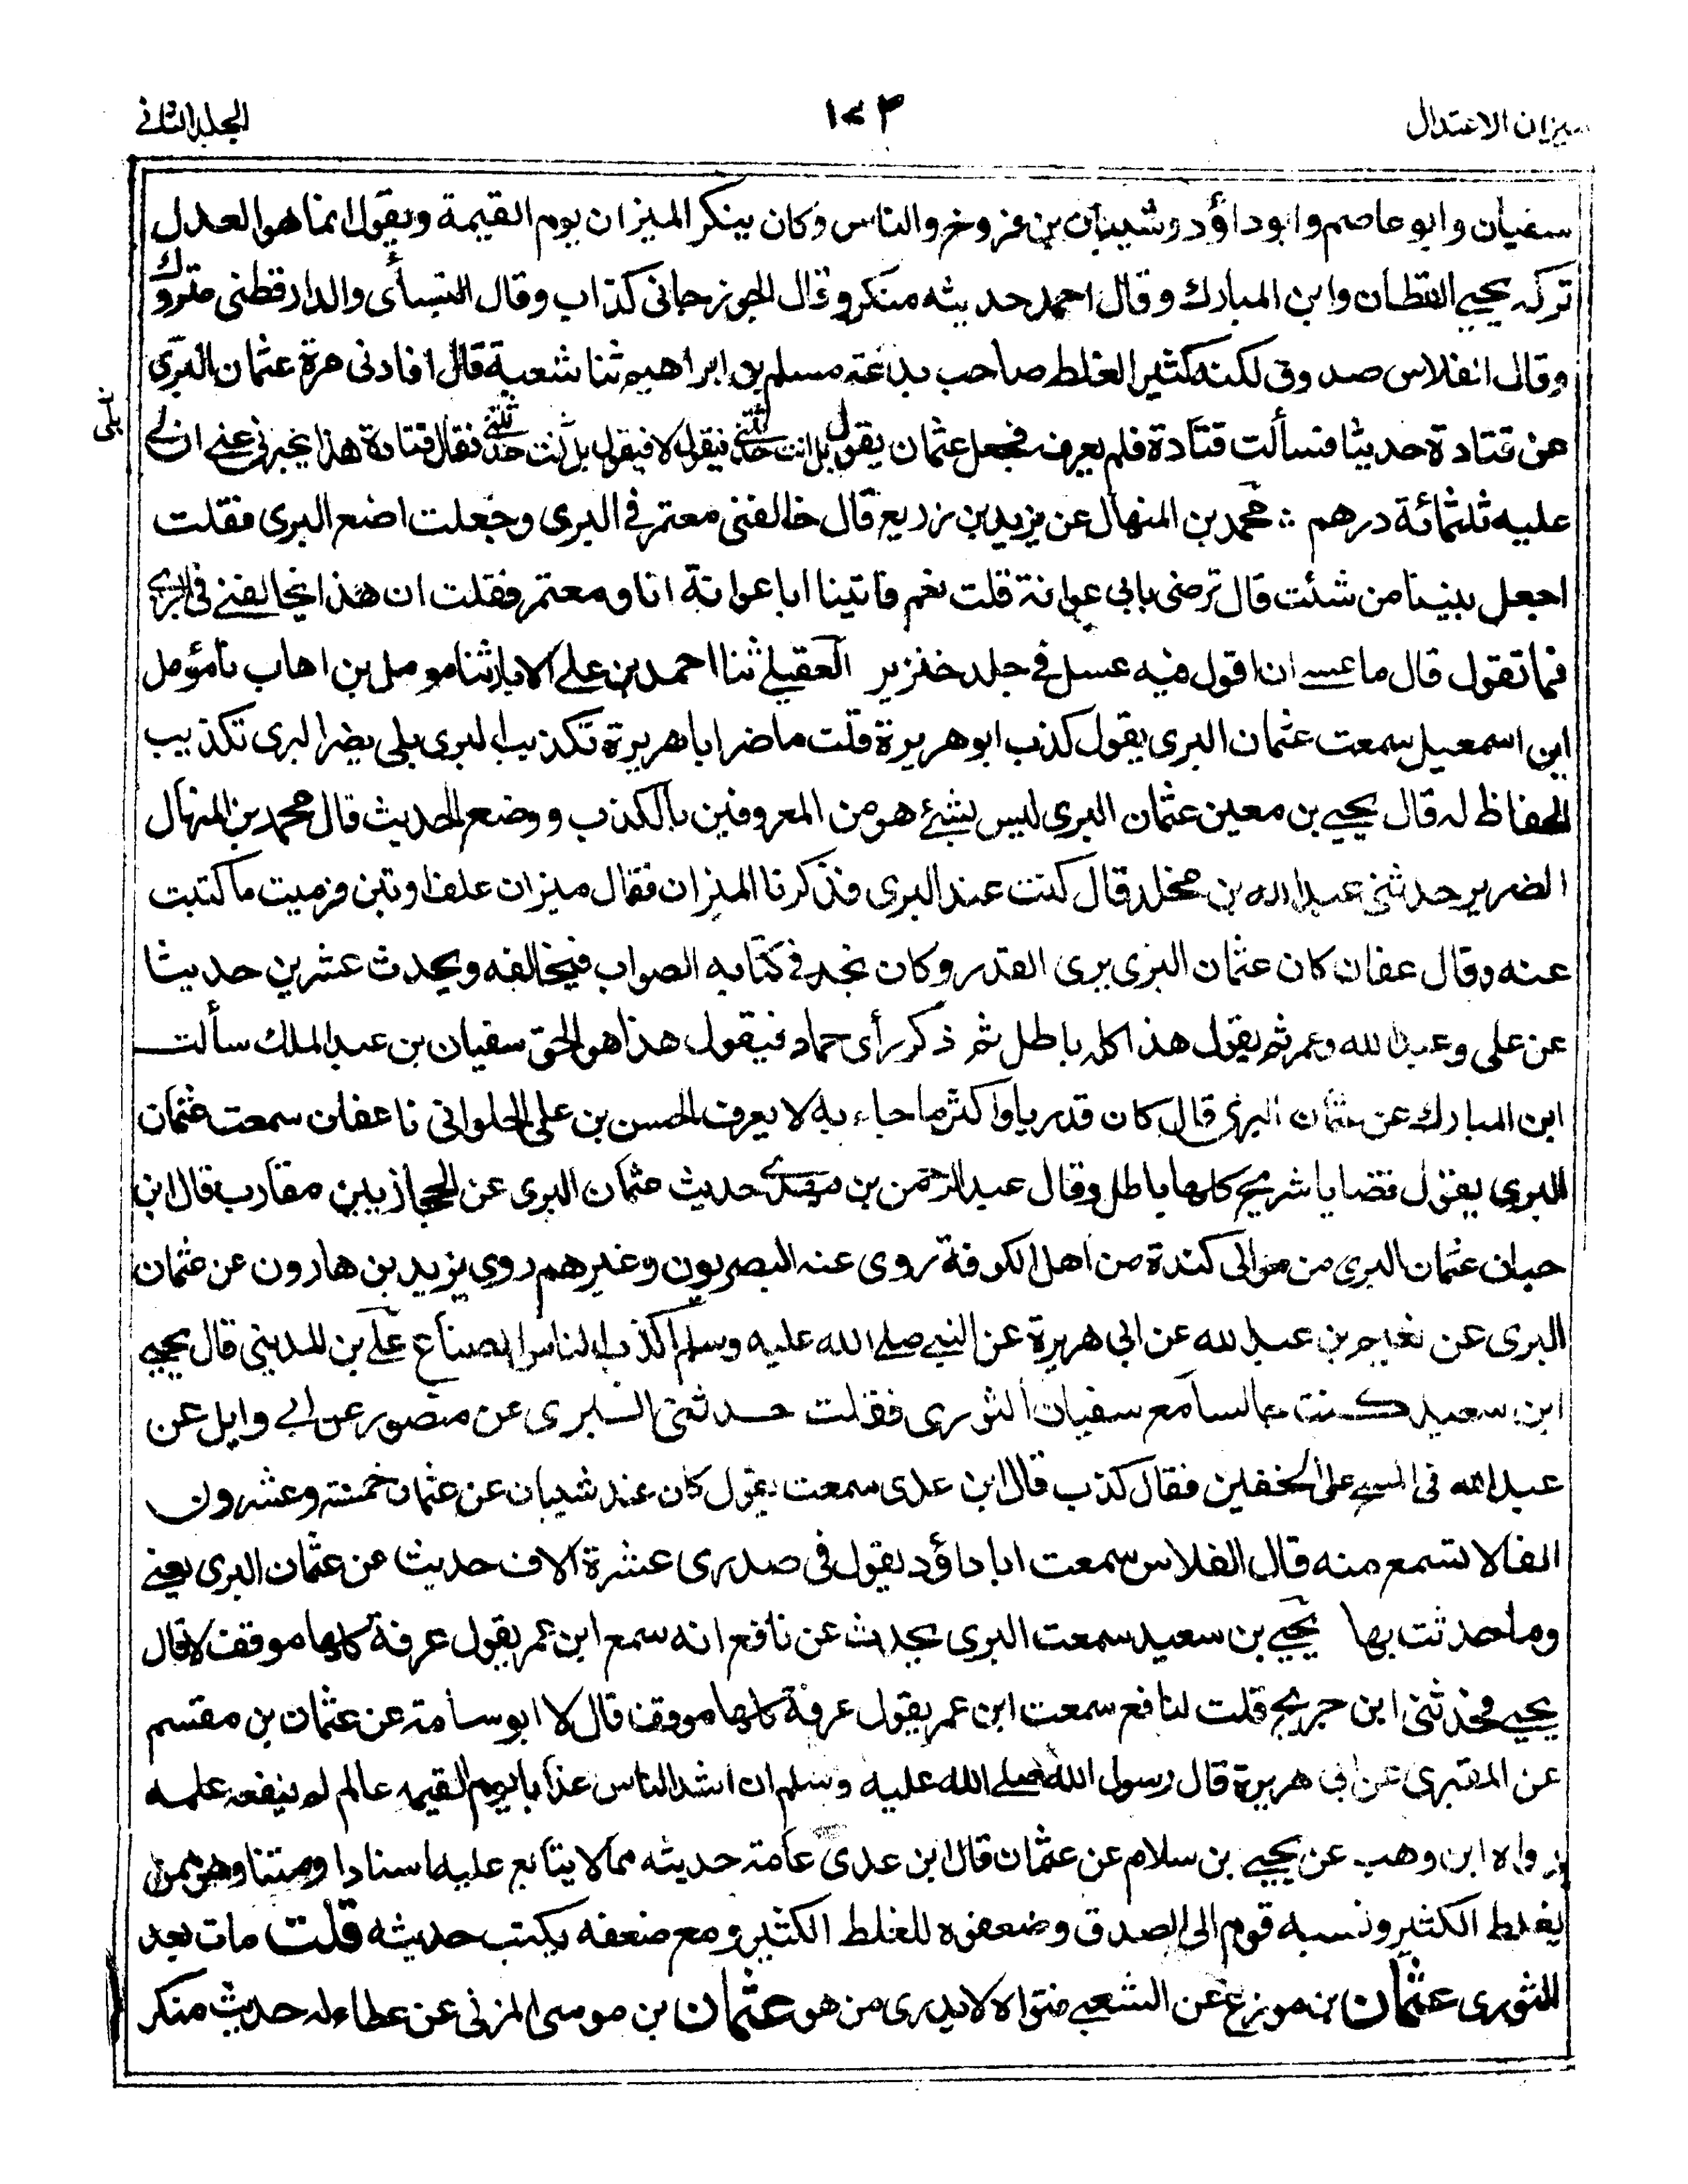 ميزان الاعتدال
١٧٣
الجلد الثاني
سفيان وابو عاصم وابو داؤد وشيبان بن فروخ والناس وكان ينكر الميزان يوم القيمة ويقول انما هو العدل
تركه يحيى القطان وابن المبارك وقال احمد حديثه منكر وقال الجوزجاني كذاب وقال النسأى والدارقطنى متروك
وقال الفلاس صدوق لكنه كثير الغلط صاحب بدعة مسلم بن ابراهيم ثنا شعبة قال افادنى مرة عثمان البرى
عن قتادة حديثا فسألت قتادة فلم يعرف فجعل عثمان يقول بل انت حدثتنى فيقول لا فيقول بل انت حدثتنى فقال قتادة هذا يخبرنى عنى ان لى
عليه ثلثمائة درهم محمد بن المنهال عن يزيد بن زريع قال خالفنى معتمر فى البرى وجعلت اضع البرى فقلت
اجعل بيننا من شئت قال ترضى بابى عوانة قلت نعم فاتينا ابا عوانة انا ومعتمر فقلت ان هذا يخالفنى فى البرى
فما تقول قال ما عسى ان اقول فيه عسل فى جلد خنزير العقيلى ثنا احمد بن على الابار ثنا مومل بن اهاب نا مؤمل
ابن اسمعيل سمعت عثمان البرى يقول كذب ابو هريرة قلت ما ضر ابا هريرة تكذيب البرى بلى يضر البرى تكذيب
الحفاظ له قال يحيى بن معين عثمان البرى ليس بشئ هو من المعروفين بالكذب ووضع الحديث قال محمد بن المنهال
الضرير حدثنى عبد الله بن مخلد قال كنت عند البرى فذكرنا الميزان فقال ميزان علف او تبن فرميت ما كتبت
عنه وقال عفان كان عثمان البرى يرى القدر وكان نجد فى كتابه الصواب فيخالفه ويحدث عشرين حديثا
عن على وعبد الله وعمر ثم يقول هذا كله باطل ثم ذكر رأى حماد فيقول هذا هو الحق سفيان بن عبد الملك سألت
ابن المبارك عن عثمان البرى قال كان قدريا واكثر ما جاء به لا يعرف الحسن بن على الحلوانى نا عفان سمعت عثمان
البرى يقول قضايا شريح كلها باطل وقال عبد الرحمن بن مهدى حديث عثمان البرى عن الحجازيين مقارب قال ابن
حبان عثمان البرى من موالى كندة من اهل الكوفة روى عنه البصريون وغيرهم روى يزيد بن هارون عن عثمان
البرى عن نعيم بن عبد الله عن ابى هريرة عن النبى صلى الله عليه وسلم اكذب الناس الصناع على بن المدينى قال يحيى
ابن سعيد كنت جالسا مع سفيان الثورى فقلت حدثنى البرى عن منصور عن ابى وايل عن
عبد الله فى المسح على الخفين فقال كذب قال ابن عدى سمعت يقول كان عند شيبان عن عثمان خمسة وعشرون
الفا لا تسمع منه قال الفلاس سمعت ابا داؤد يقول فى صدرى عشرة الاف حديث عن عثمان البرى يعنى
وما حدثت بها يحيى بن سعيد سمعت البرى يحدث عن نافع انه سمع ابن عمر يقول عرفة كلها موقف لا قال
يحيى فحدثنى ابن جريج قلت لنافع سمعت ابن عمر يقول عرفة كلها موقف قال لا ابو سامة عن عثمان بن مقسم
عن المقبرى عن ابى هريرة قال رسول الله صلى الله عليه وسلم ان اشد الناس عذابا يوم القيمه عالم لم ينفعه علمه
رواه ابن وهب عن يحيى بن سلام عن عثمان قال ابن عدى عامة حديثه مما لا يتابع عليه اسنادا ومتنا وهو ممن
يغلط الكثير ونسبه قوم الى الصدق وضعفوه للغلط الكثير ومع ضعفه يكتب حديثه قلت مات بعد
الثورى عثمان بن موزع عن الشعبى فتواه لا يدرى من هو عثمان بن موسى المزنى عن عطاء له حديث منكر